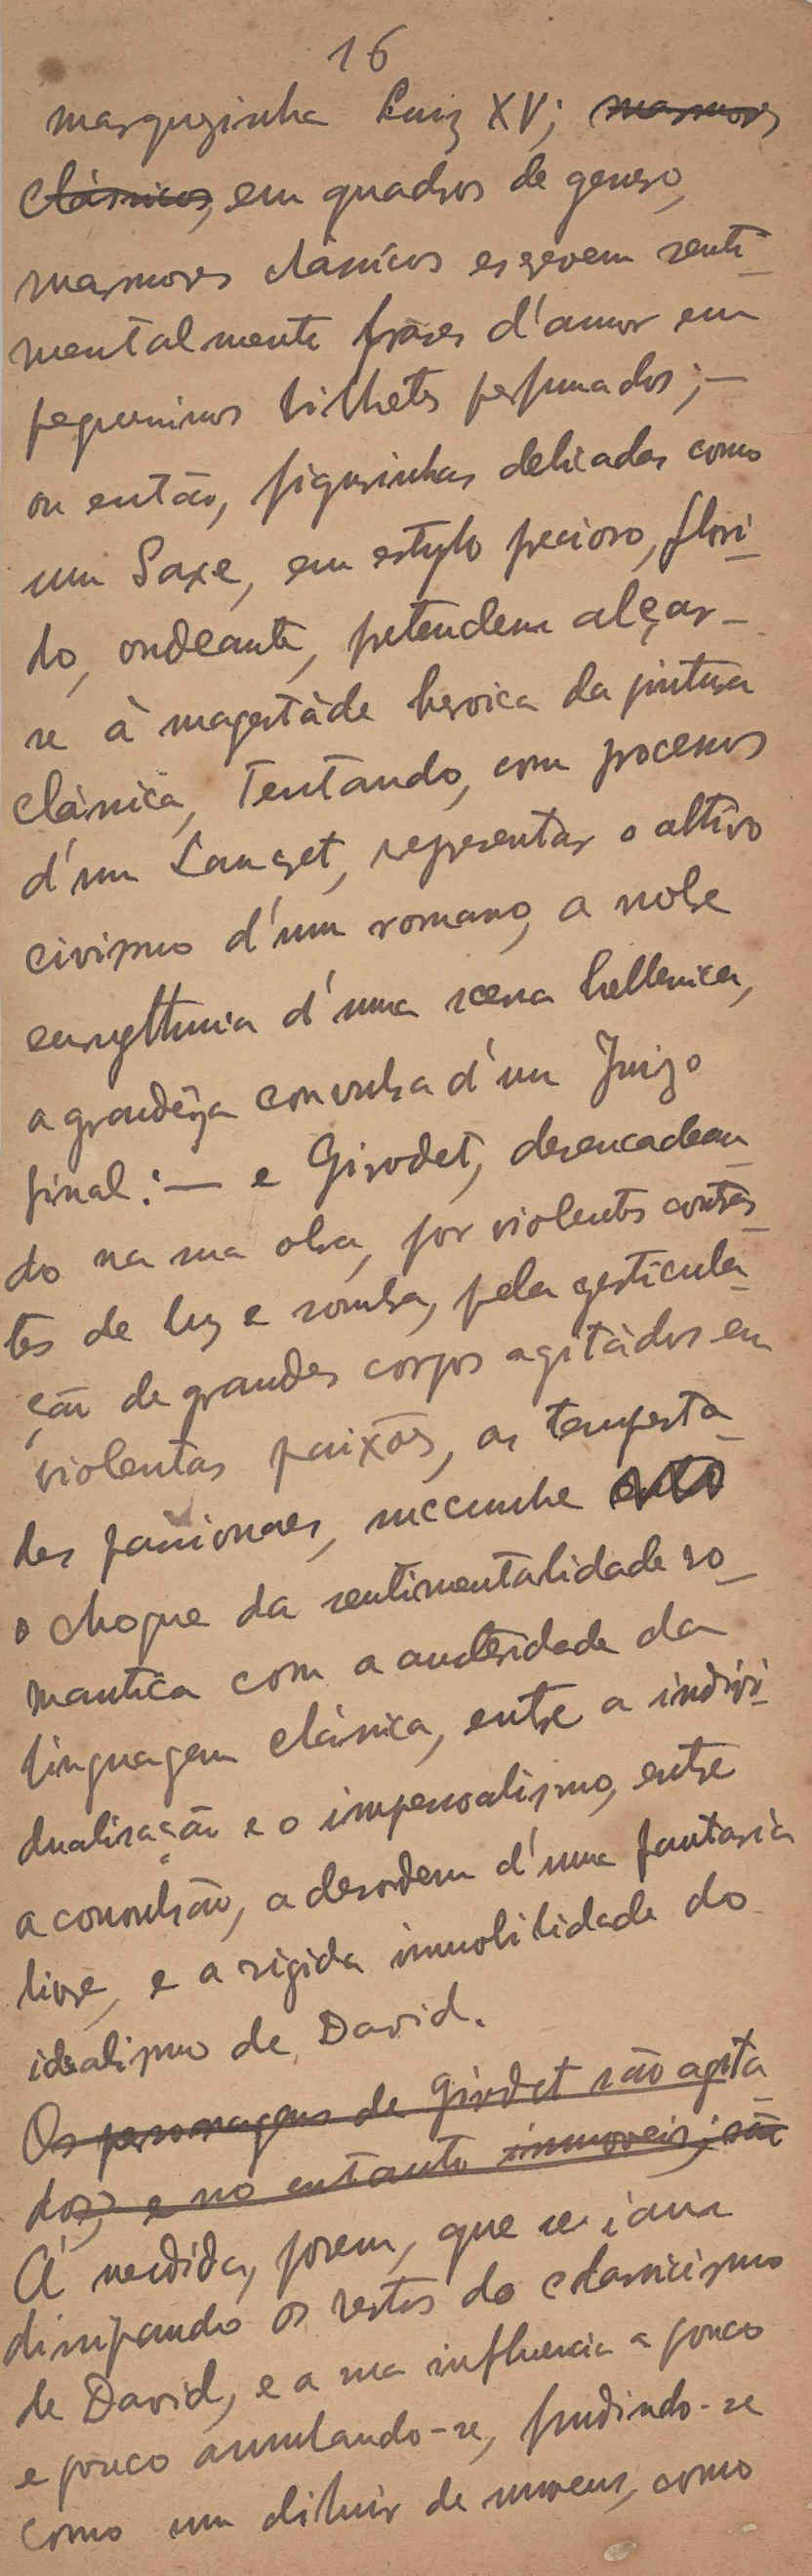 16
marquezinha Luiz XV; marmores
clássicos, em quadros de genero,
marmores clássicos escrevem senti-
mentalmente frases d'amor em
pequeninos bilhetes perfumados; —
ou então, figurinhas delicadas como
um Saxe, em estylo precioso, flori-
do, ondeante, pretendem alçar-
se à magestáde heroica da pintura
clássica, tentando, com processos
d'um Lancret, representar o altivo
civismo d'um romano, a nobre
eurythmia d'uma scena hellenica,
a grandêza convulsa d'um Juizo
final: — e Girodet, desencadean-
do na sua obra, por violentos contras-
tes de luz e sombra, pela gesticula-
ção de grandes corpos agitádos em
violentas paixões, as tempesta-
des passionaes, succumbe
o choque da sentimentalidade ro-
mantica com a austeridade da
linguagem clássica, entre a indivi-
dualisação e o impersoalismo, entre
a convulsão, a desordem d'uma fantasia
livre, e a rigida immobilidade do
idealismo de David.
Os personagens de Girodet são agita-
dos, e no entanto immoveis; são
Á medida, porem, que se iam
dissipando os restos do classicismo
de David, e a sua influencia a pouco
e pouco annulando-se, fundindo-se
como um diluir de nuvens, como